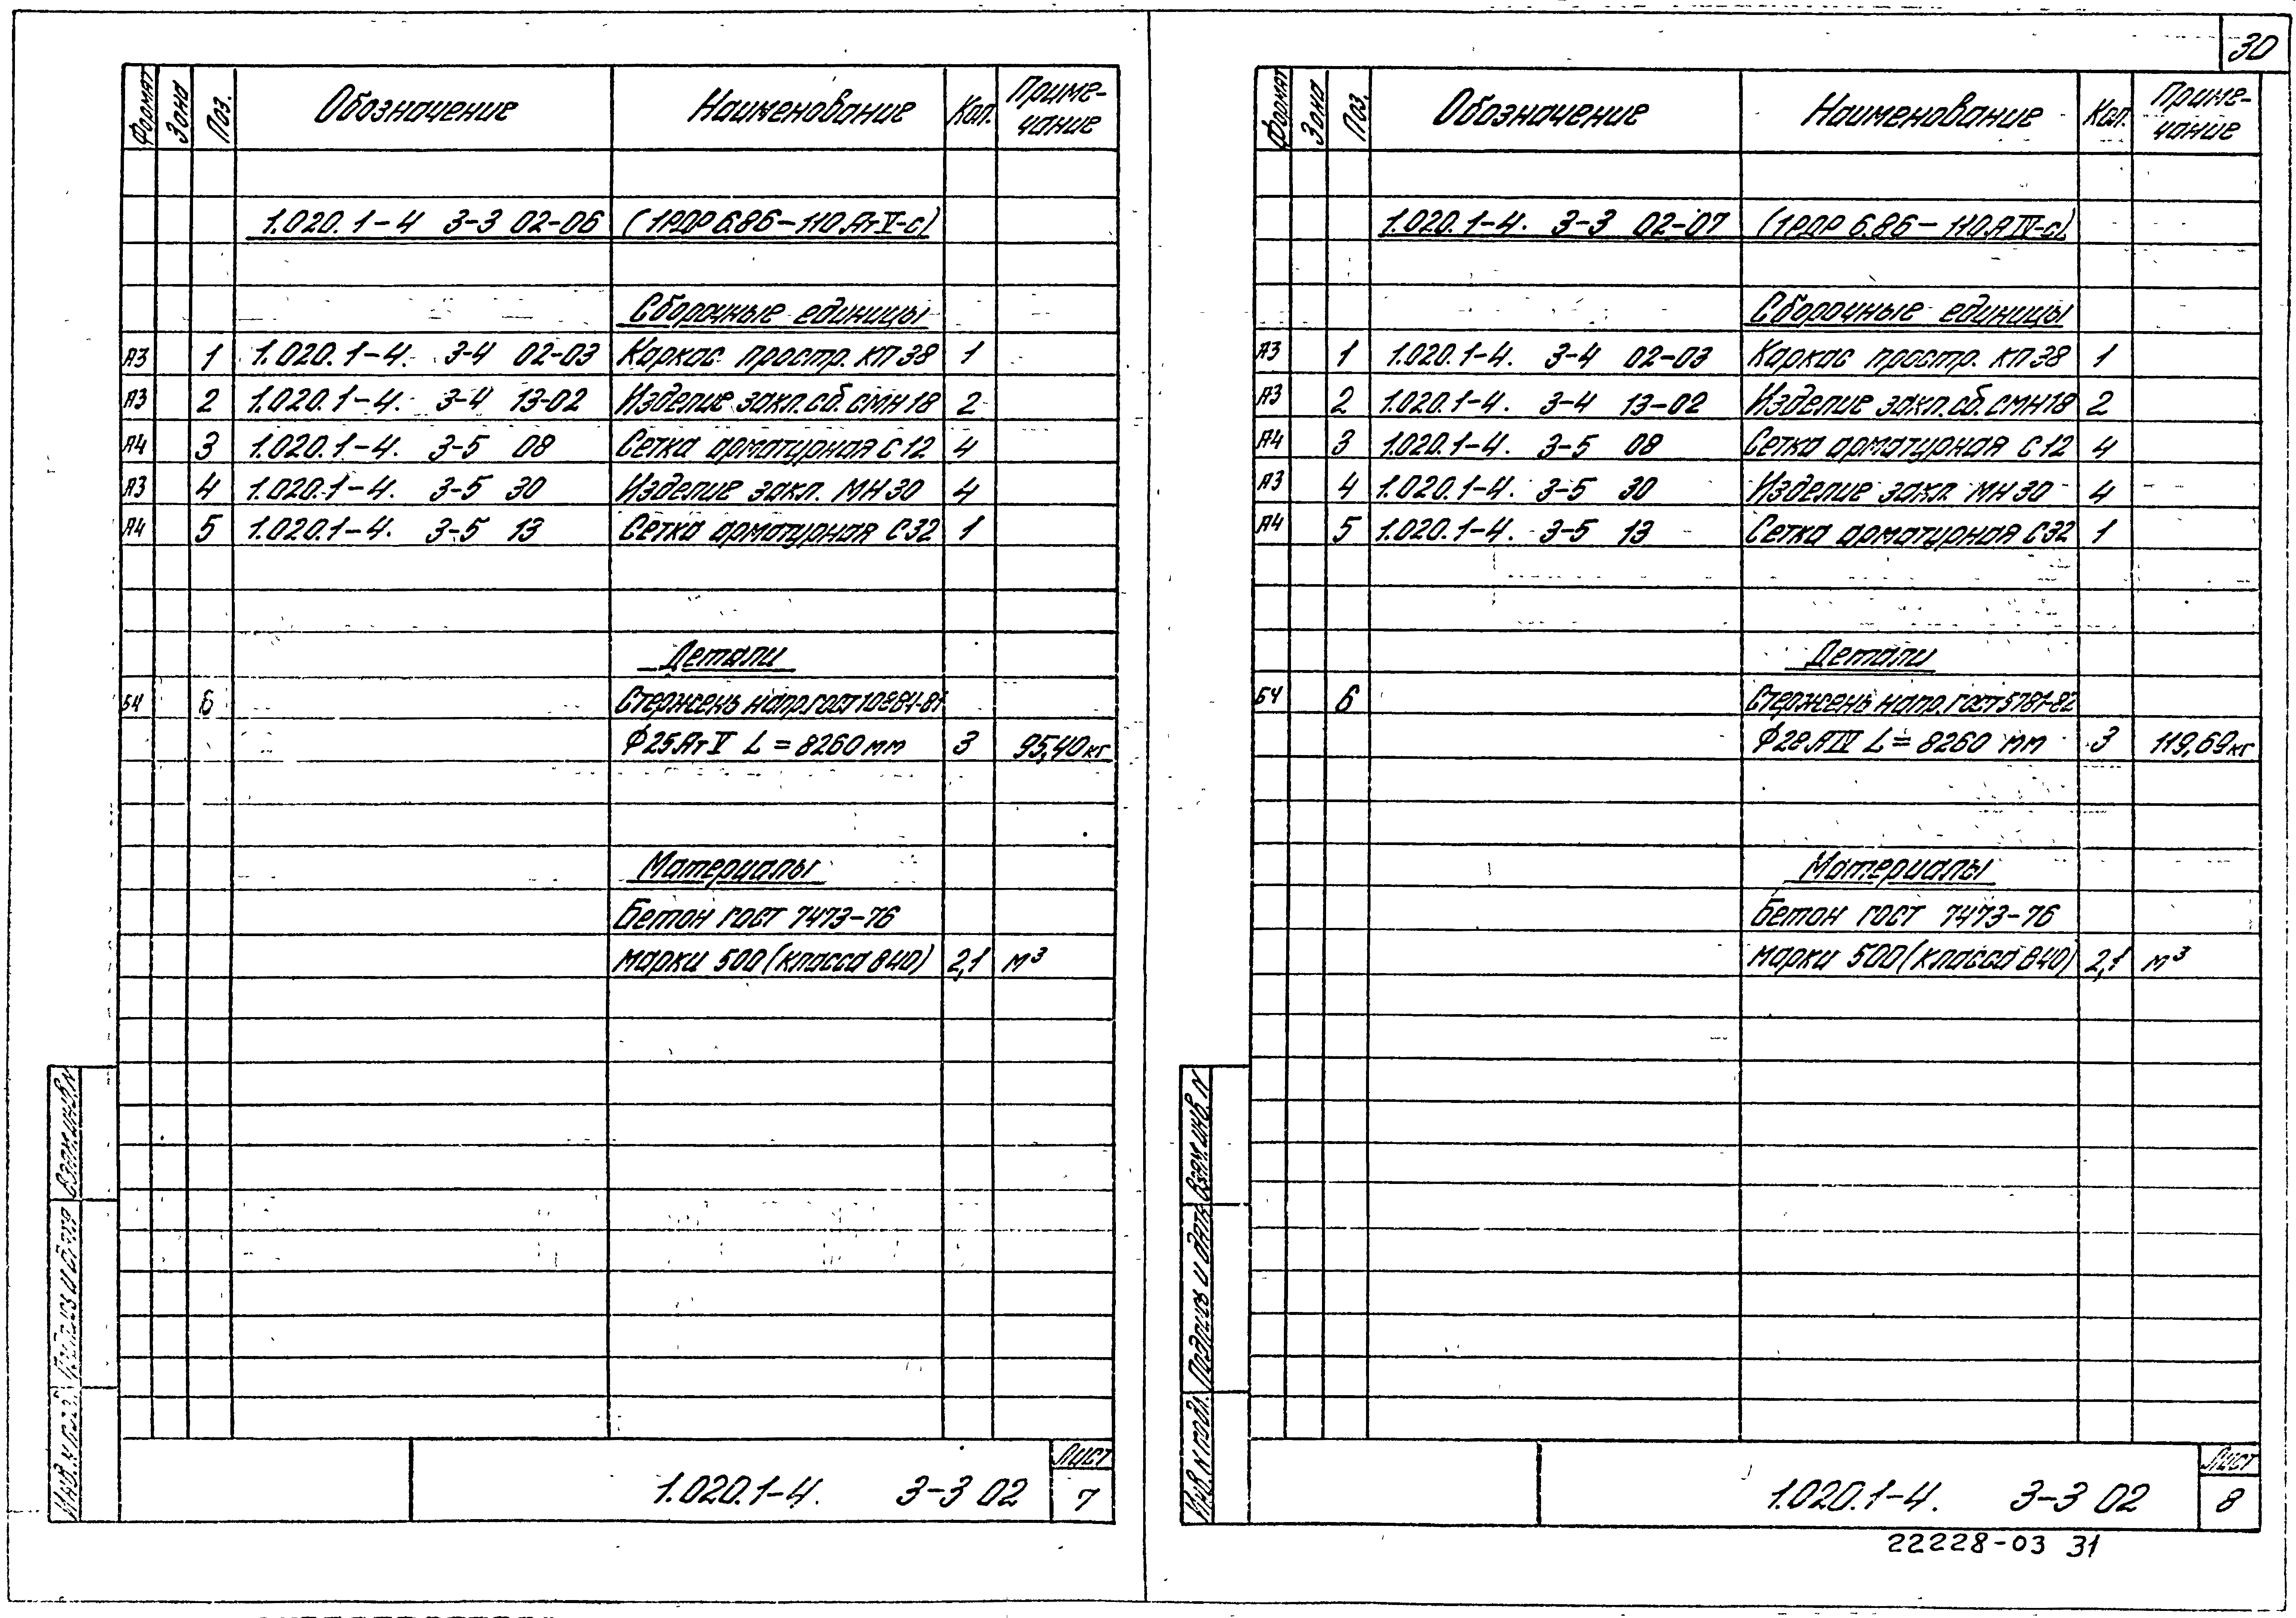 30
Формат Зона Поз. Обозначение Наименование Кол. Приме-
чание
1.020.1-4 3-3 02-06 (1РДР 6.86-110.АтV-с)
Сборочные единицы
А3 1 1.020.1-4. 3-4 02-03 Каркас простр. КП 38 1
А3 2 1.020.1-4. 3-4 13-02 Изделие закл.сб. СМН 18 2
А4 3 1.020.1-4. 3-5 08 Сетка арматурная С 12 4
А3 4 1.020.1-4. 3-5 30 Изделие закл. МН 30 4
А4 5 1.020.1-4. 3-5 13 Сетка арматурная С 32 1
Детали
Б4 6 Стержень напр. ГОСТ 10884-81
Ф 25АтV L = 8260 мм 3 95,40 кг
Материалы
Бетон ГОСТ 7473-76
марки 500 (класса В40) 2,1 м³
Взам.инв.N
Подпись и дата
Инв. N подл.
1.020.1-4. 3-3 02
Лист
7
Формат Зона Поз. Обозначение Наименование Кол. Приме-
чание
1.020.1-4. 3-3 02-07 (1РДР 6.86-110.АIV-с)
Сборочные единицы
А3 1 1.020.1-4. 3-4 02-03 Каркас простр. КП 38 1
А3 2 1.020.1-4. 3-4 13-02 Изделие закл.сб. СМН 18 2
А4 3 1.020.1-4. 3-5 08 Сетка арматурная С 12 4
А3 4 1.020.1-4. 3-5 30 Изделие закл. МН 30 4
А4 5 1.020.1-4. 3-5 13 Сетка арматурная С 32 1
Детали
Б4 6 Стержень напр. ГОСТ 5781-82
Ф 28 АIV L = 8260 мм 3 119,69 кг
Материалы
Бетон ГОСТ 7473-76
марки 500 (класса В40) 2,1 м³
Взам. инв. N
Подпись и дата
Инв. N подл.
1.020.1-4. 3-3 02
Лист
8
22228-03 31